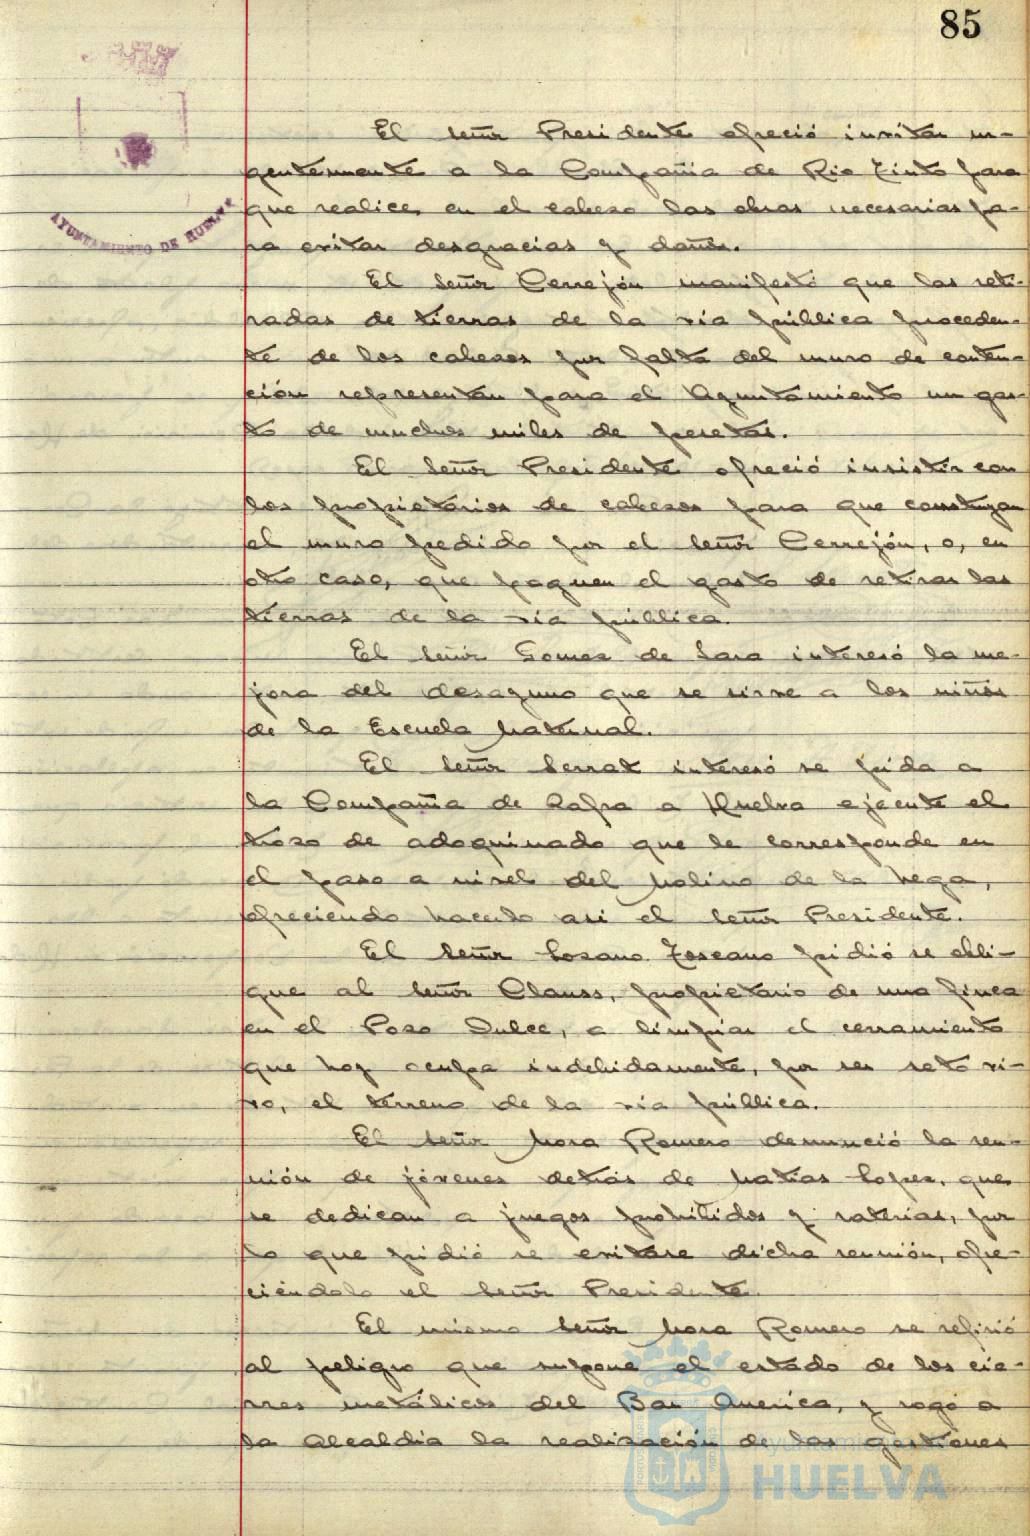 85
AYUNTAMIENTO DE HUELVA
El señor Presidente ofreció invitar ur-
gentemente a la Compañia de Rio Tinto para
que realice, en el cabezo las obras necesarias pa-
ra evitar desgracias y daños.
El señor Cerrejón manifestó que las reti-
radas de tierras de la via pública proceden-
te de los cabezos por falta del muro de conten-
ción representan para el Ayuntamiento un gas-
to de muchos miles de pesetas.
El señor Presidente ofreció insistir con
los propietarios de cabezos para que construyan
el muro pedido por el señor Cerrejón, o, en
otro caso, que paguen el gasto de retirar las
tierras de la via pública.
El señor Gomez de Lara interesó la me-
jora del desayuno que se sirve a los niños
de la Escuela Maternal.
El señor Serrat interesó se pida a
la Compañia de Zafra a Huelva ejecute el
trozo de adoquinado que le corresponde en
el paso a nivel del Molino de la Vega,
ofreciendo hacerlo asi el señor Presidente.
El señor Lozano Toscano pidió se obli-
gue al señor Clauss, propietario de una finca
en el Pozo Dulce, a limpiar el cerramiento
que hoy ocupa indebidamente, por ser seto vi-
vo, el terreno de la via pública.
El señor Mora Romero denunció la reu-
nión de jóvenes detrás de Matias Lopez, que,
se dedican a juegos prohibidos y raterias, por
lo que pidió se evitase dicha reunión, ofre-
ciéndolo el señor Presidente.
El mismo señor Mora Romero se refirió
al peligro que supone el estado de los cie-
rres metálicos del Bar America, y rogó a
la Alcaldia la realización de las gestiones
Ayuntamiento de
HUELVA